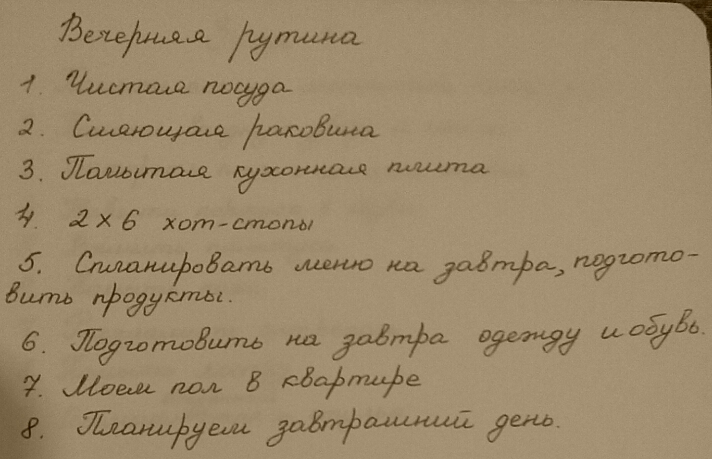 Вечерняя рутина
1. Чистая посуда
2. Сияющая раковина
3. Помытая кухонная плита
4. 2×6 хот-стопы
5. Спланировать меню на завтра, подгото-
вить продукты.
6. Подготовить на завтра одежду и обувь.
7. Моем пол в квартире
8. Планируем завтрашний день.